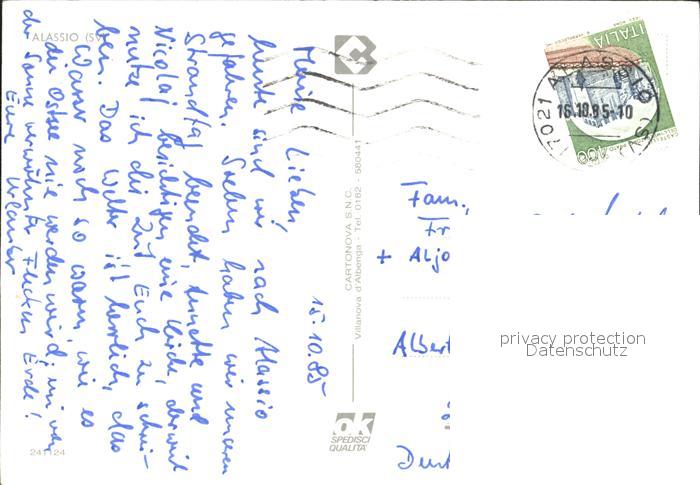 ALASSIO (SV)
15.10.85
Meine Lieben,
heute sind wir nach Alassio
gefahren. Soeben haben wir unseren
Strandtag beendet, Annette und
Nicolaj besichtigen eine Kirche, derweil
nutze ich die Zeit Euch zu schrei-
ben. Das Wetter ist herrlich, das
Wasser noch so warm, wie es
die Ostsee nie werden wird, im von
der Sonne verwöhnten Flecken Erde!
Eure Urlauber
241124
CARTONOVA S.N.C.
Villanova d'Albenga - Tel. 0182 - 580441
ok
SPEDISCI
QUALITÀ
ITALIA
400
17021 ALASSIO (SV)
16.10.85-10
Fam.
Fr
+ Aljo
Albert
privacy protection
Datenschutz